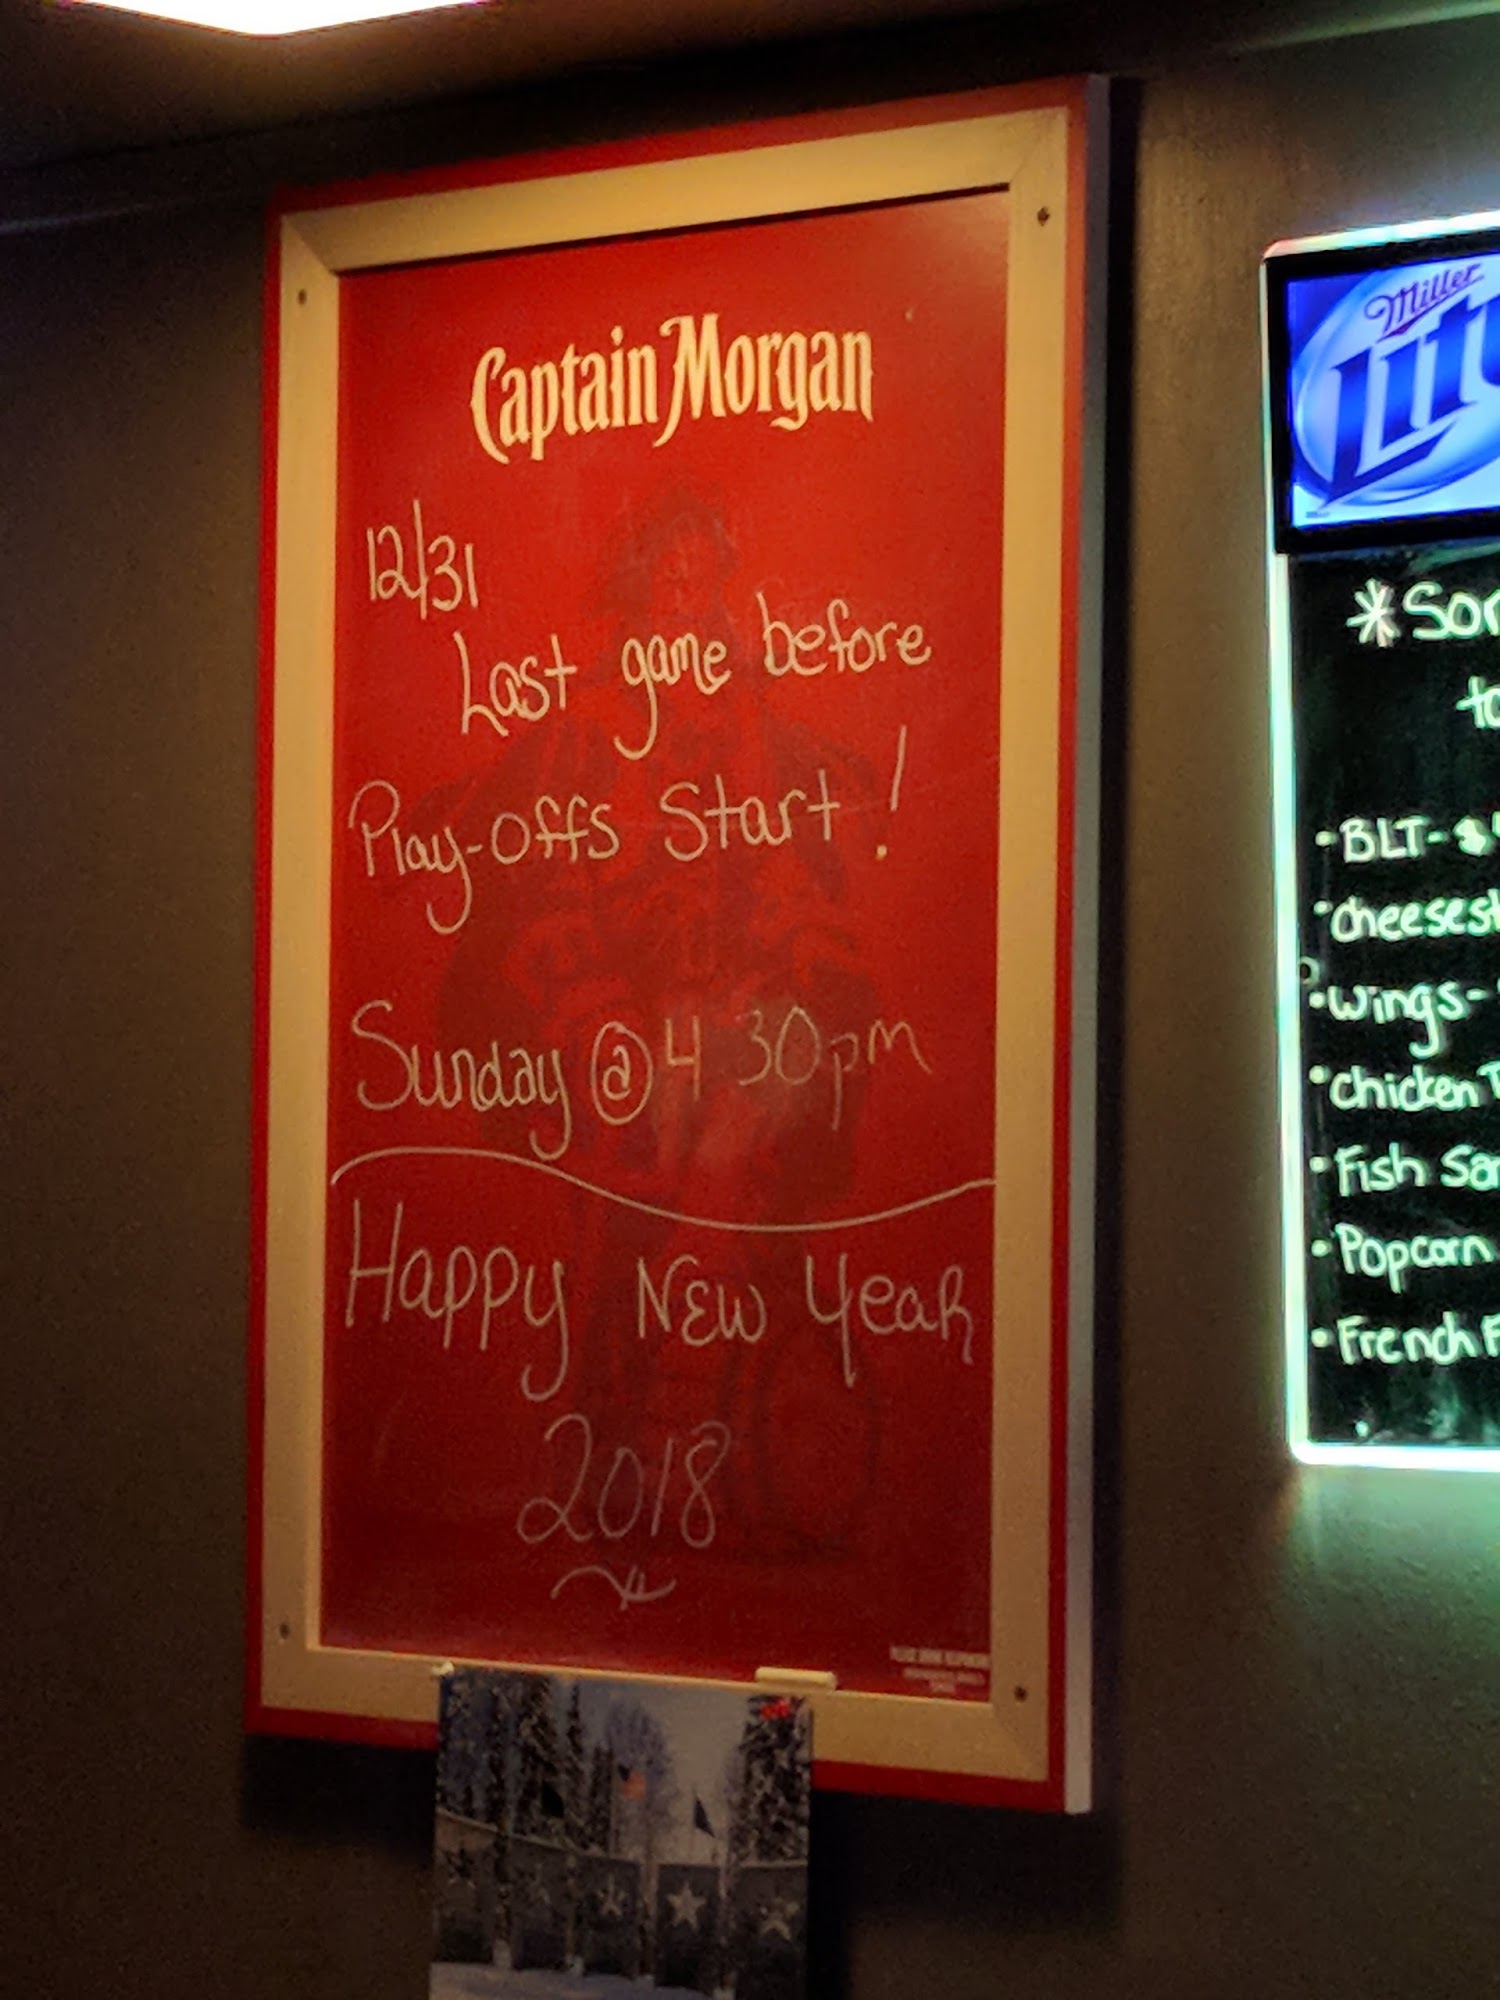 Captain Morgan
12/31
Last game before
Play-offs Start!
Sunday @ 4 30pm
Happy New Year
2018
Miller
Lit
*Sor
to
• BLT- $
• Cheesest
• Wings-
• Chicken T
• Fish San
• Popcorn
• French F